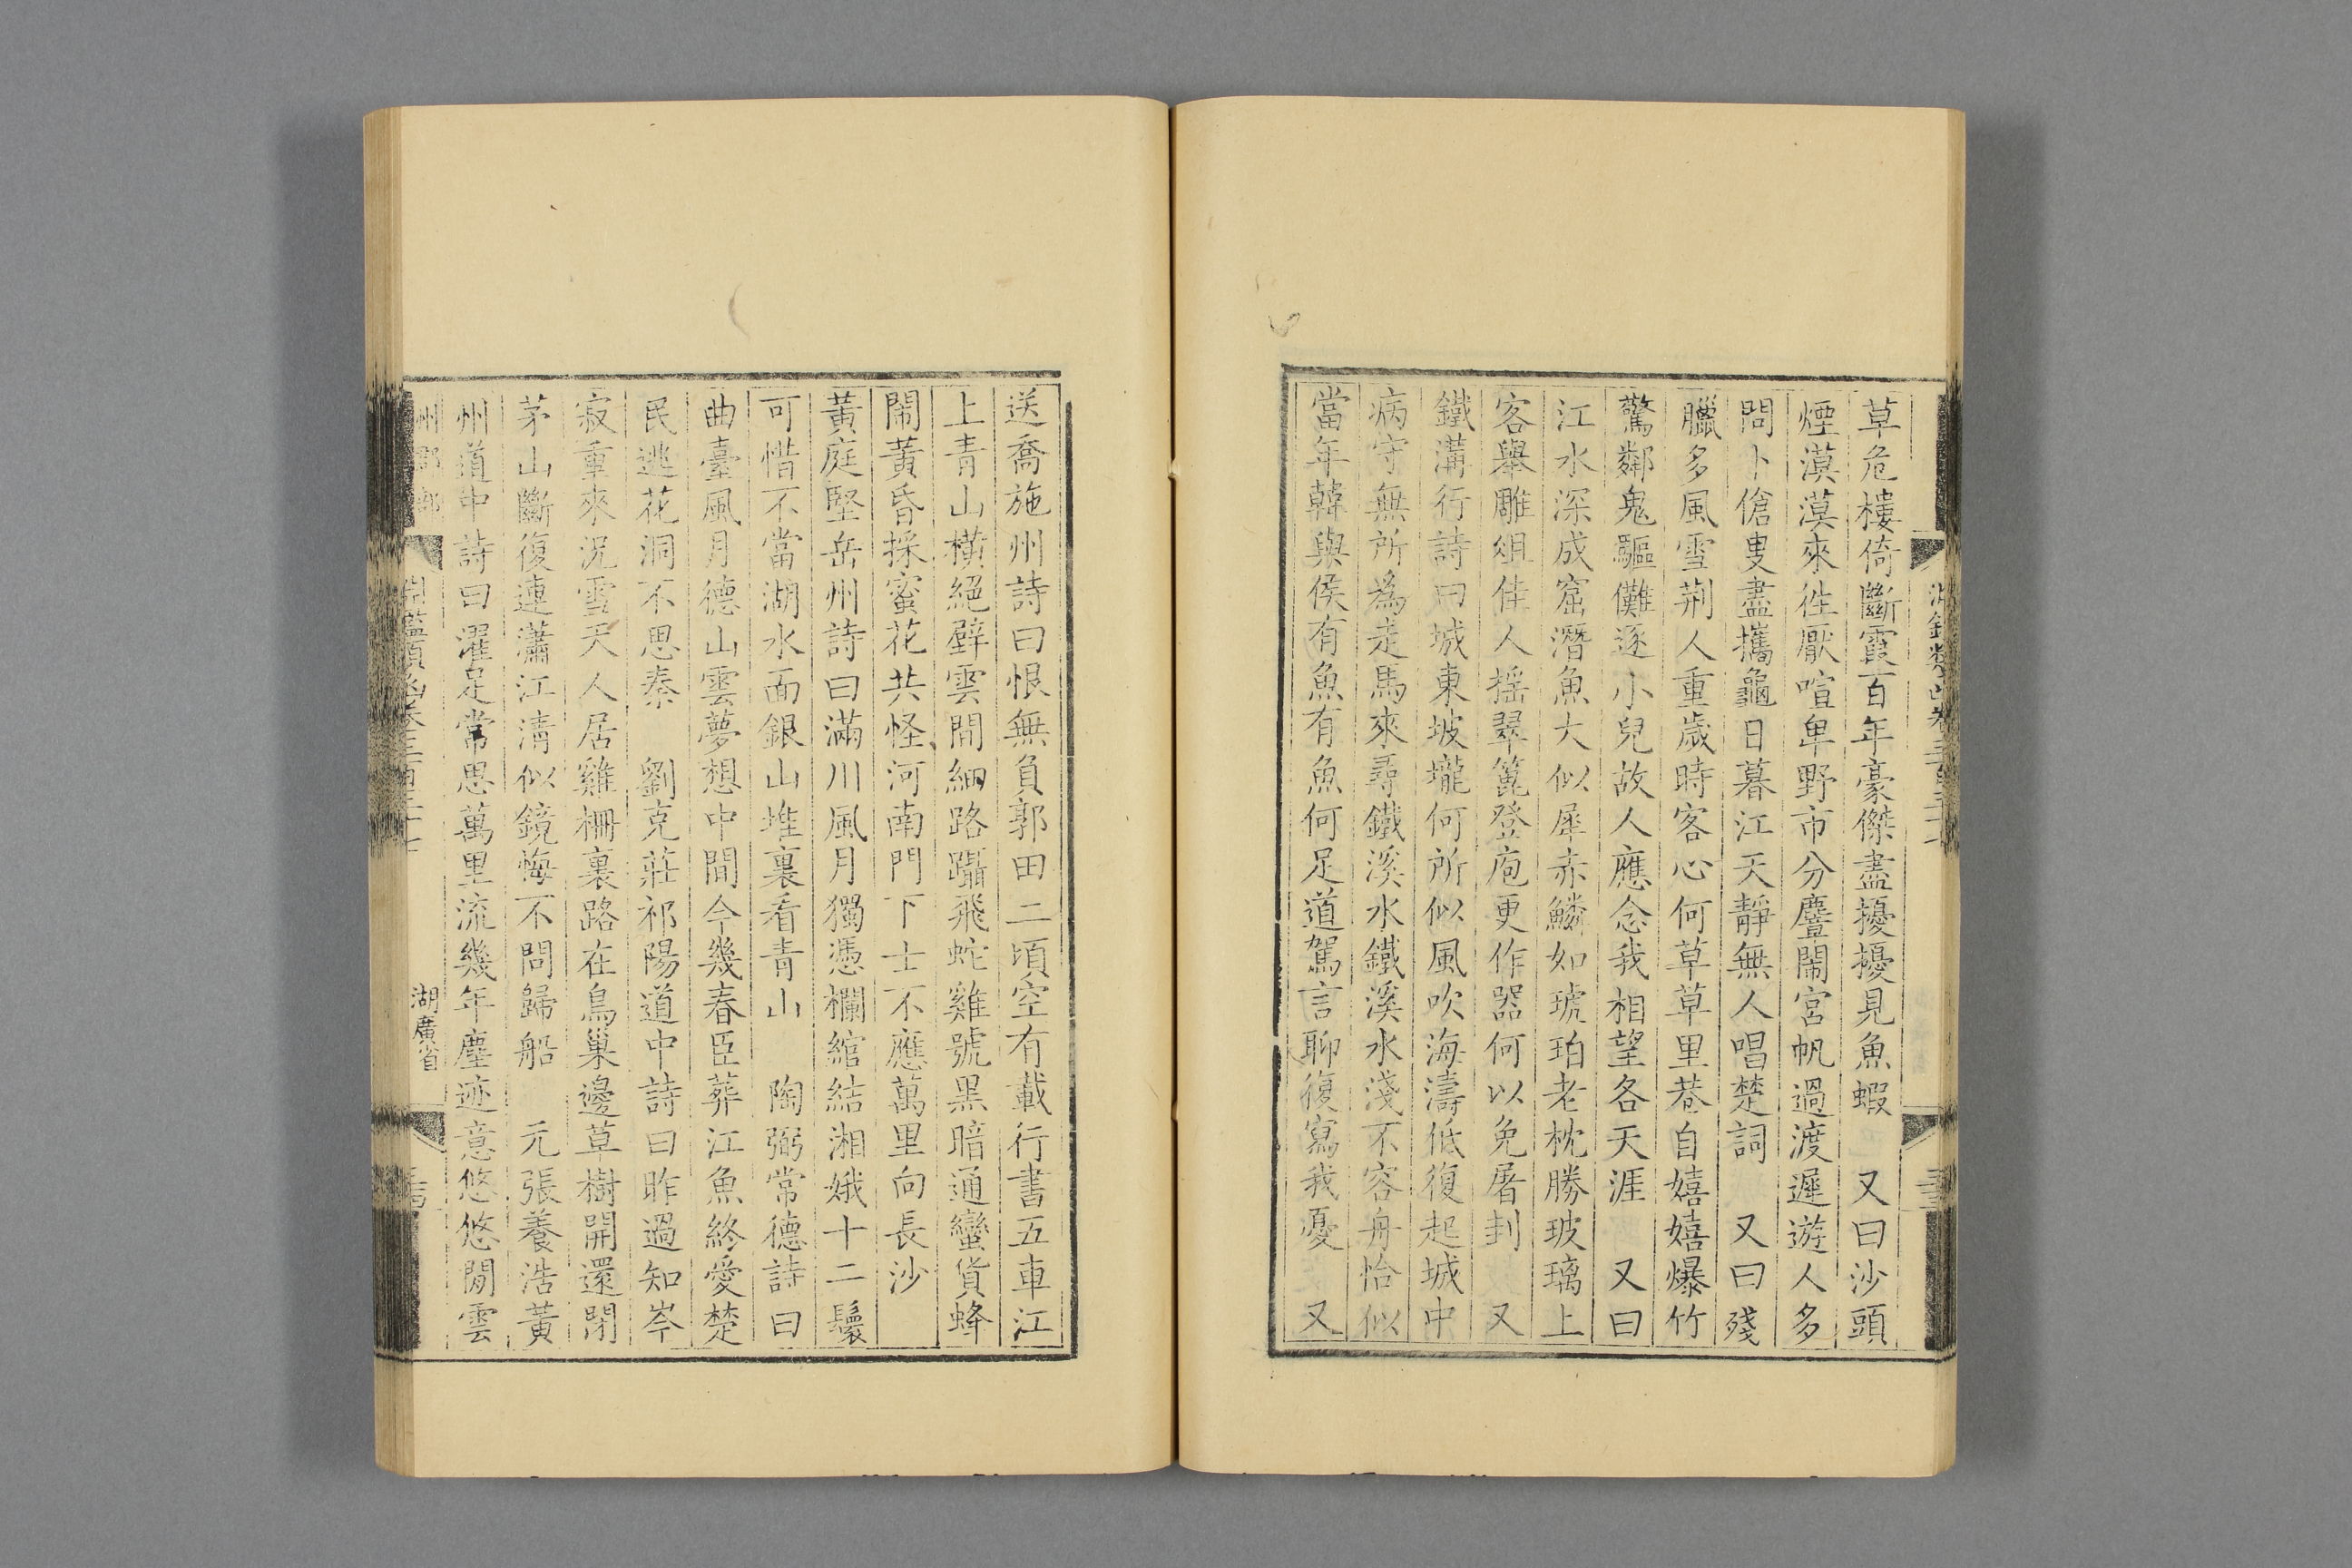 草危樓倚斷霞百年豪傑盡擾擾見魚蝦　又曰沙頭
煙漠漠來往厭喧卑野市分麞鬧宮帆過渡遲遊人多
問卜傖叟盡攜龜日暮江天靜無人唱楚詞　又曰殘
臘多風雪荆人重歲時客心何草草里巷自嬉嬉爆竹
驚鄰鬼驅儺逐小兒故人應念我相望各天涯　又曰
江水深成窟潛魚大似犀赤鱗如琥珀老枕勝玻璃上
客舉雕俎佳人搖翠篦登庖更作器何以免屠刲　又
鐵溝行詩曰城東坡壠何所似風吹海濤低復起城中
病守無所爲走馬來尋鐵溪水鐵溪水淺不容舟恰似
當年韓與侯有魚有魚何足道駕言聊復寫我憂　又
送喬施州詩曰恨無負郭田二頃空有載行書五車江
上青山橫絕壁雲間細路躡飛蛇雞號黑暗通蠻貨蜂
鬧黃昏採蜜花共怪河南門下士不應萬里向長沙
黃庭堅岳州詩曰滿川風月獨憑欄綰結湘娥十二鬟
可惜不當湖水面銀山堆裏看青山　陶弼常德詩曰
曲臺風月德山雲夢想中間今幾春臣葬江魚終愛楚
民逃花洞不思秦　劉克莊祁陽道中詩曰昨過知岑
寂重來況雪天人居雞柵裏路在鳥巢邊草樹開還閉
茅山斷復連瀟江淸似鏡悔不問歸船　元張養浩黃
州道中詩曰濯足常思萬里流幾年塵迹意悠悠閒雲
州郡部
淵鑑類函卷三百三十七
湖廣省